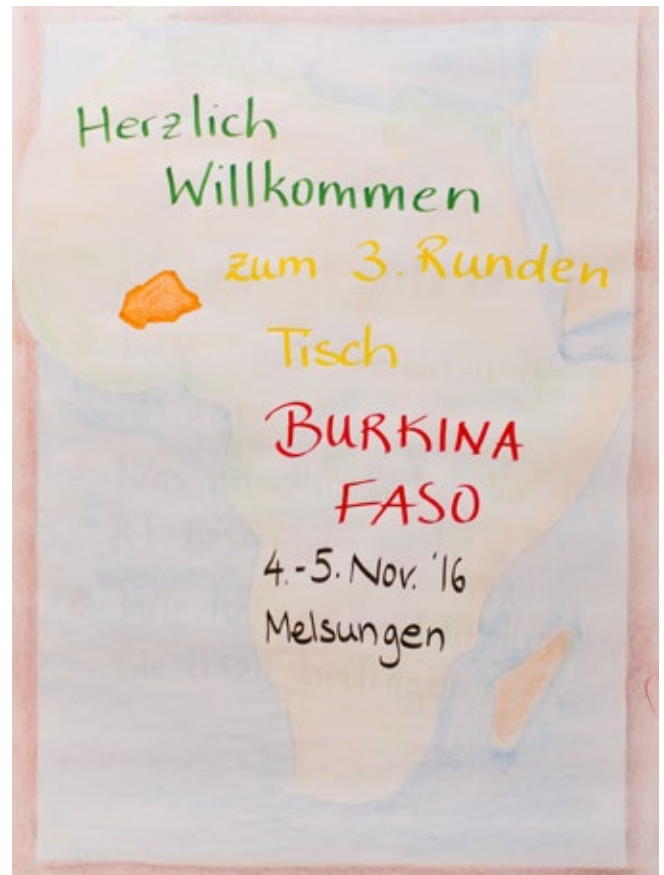 Herzlich
Willkommen
zum 3. Runden
Tisch
BURKINA
FASO
4.-5. Nov. '16
Melsungen